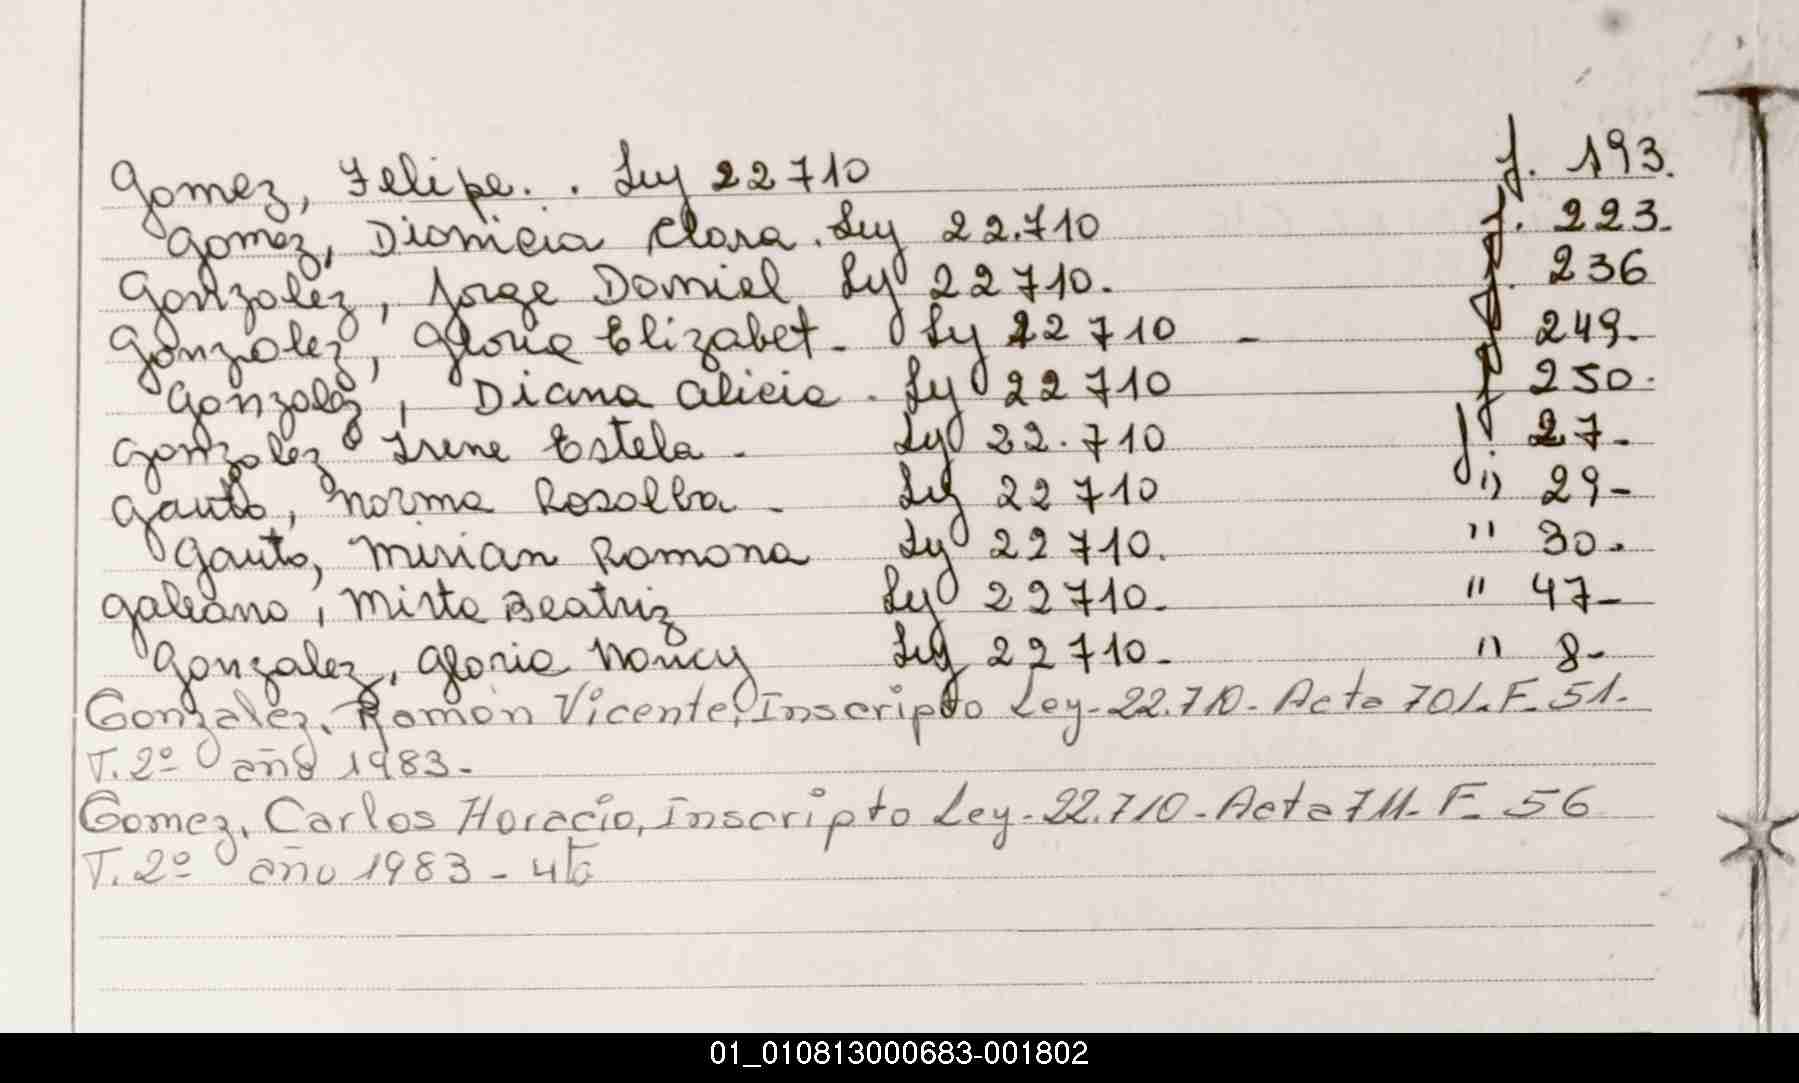 Gomez, Felipe. . Ley 22710 f. 193.
Gomez, Dionicia Clara. Ley 22.710 f. 223.
Gonzalez, Jorge Daniel Ley 22710. f. 236
Gonzalez, Gloria Elizabet. Ley 22710 - f 249.
Gonzalez, Diana Alicia. Ley 22710 f 250.
Gonzalez Irene Estela. Ley 22.710 f. 27-
Gauto, Norma Rosalba. Ley 22710 " 29-
Gauto, Mirian Ramona Ley 22710. " 30.
Galeano, Mirta Beatriz Ley 22710. " 47-
Gonzalez, Gloria Nancy Ley 22710. " 8-
Gonzalez, Ramón Vicente, Inscripto Ley-22.710-Acta 701.F.51.
T.2º año 1983-
Gomez, Carlos Horacio, Inscripto Ley-22.710-Acta 711-F-56
T.2º año 1983-
01_010813000683-001802